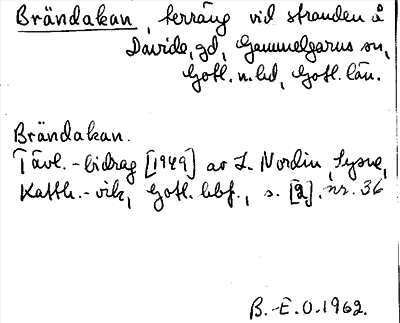 Brändakan, terräng vid stranden å
Davide, gd, Gammelgarns sn,
Gotl. n. hd, Gotl. län.
Brändakan.
Tävl.-bidrag [1949] av L. Nordin, Sysne,
Katth.-vik, Gotl. hbf., s. [2]. nr. 36
B.-E.O. 1962.